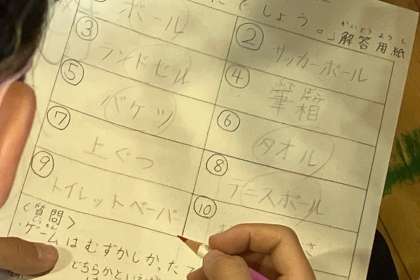 でしょう。
かいとうようし
解答用紙
ボール
②
サッカーボール
③
ランドセル
④
筆箱
⑤
バケツ
⑥
タオル
⑦
上ぐつ
⑧
テニスボール
⑨
トイレットペーパ
⑩
<質問>
ゲームはむずかしかった
どちらかといえば